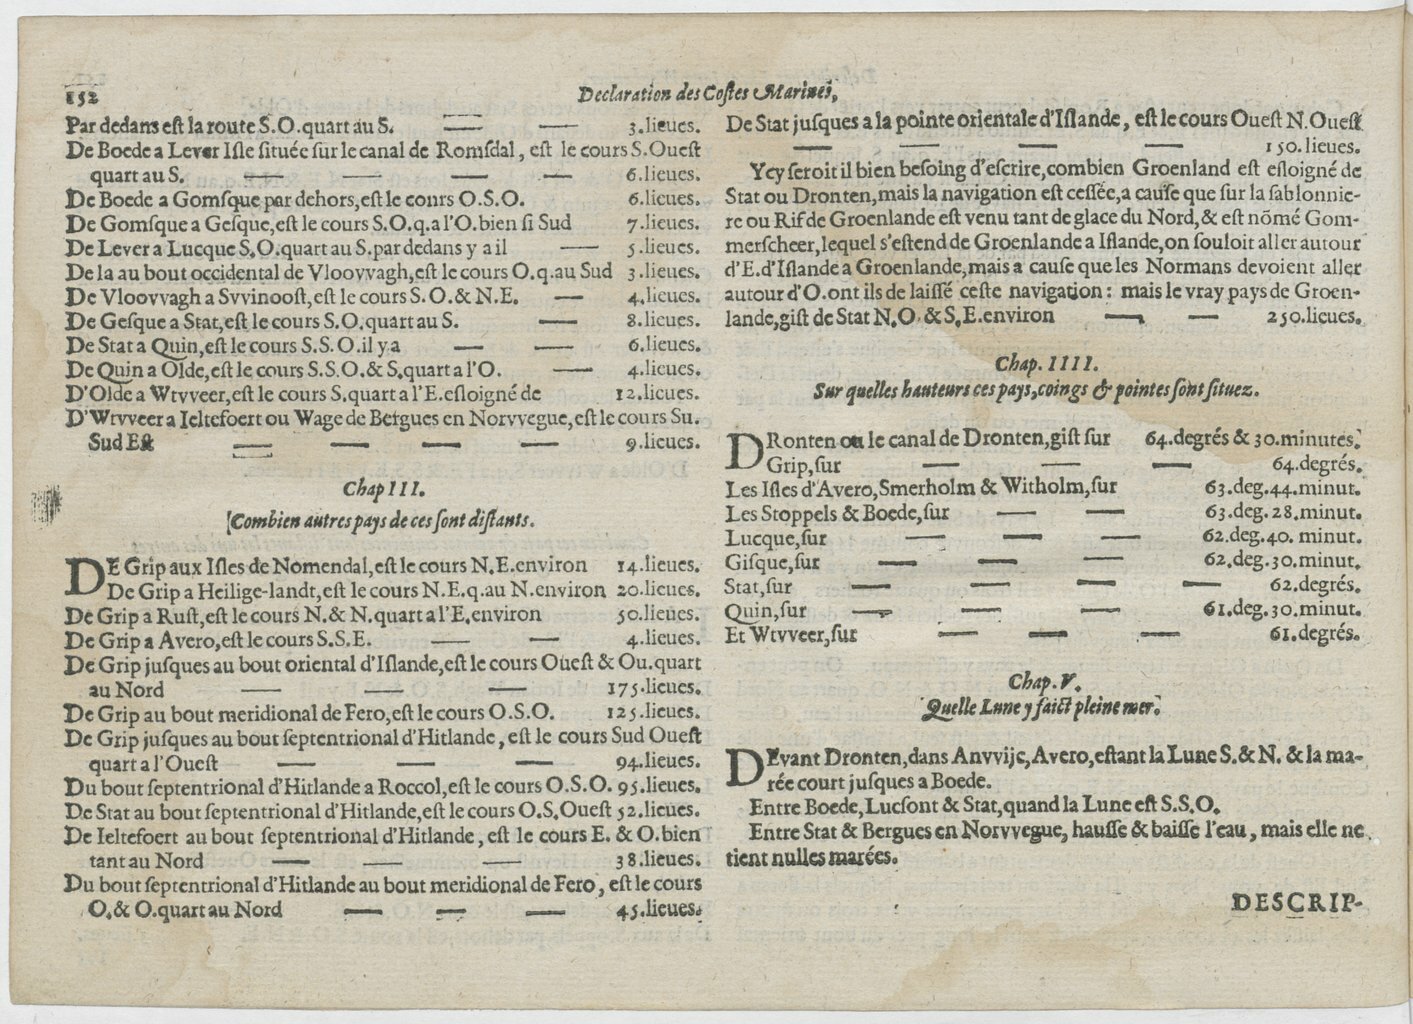 152
Declaration des Costes Marines,
Par dedans est la route S.O.quart au S. 3.lieues.
De Boede a Lever Isle située sur le canal de Romsdal, est le cours S.Ouest
quart au S. 6.lieues.
De Boede a Gomsque par dehors,est le cours O.S.O. 6.lieues.
De Gomsque a Gesque,est le cours S.O.q.a l'O.bien si Sud 7.lieues.
De Lever a Lucque S.O.quart au S.par dedans y a il 5.lieues.
De la au bout occidental de Vloovvagh,est le cours O.q.au Sud 3.lieues.
De Vloovvagh a Svvinoost,est le cours S.O.& N.E. 4.lieues.
De Gesque a Stat,est le cours S.O.quart au S. 8.lieues.
De Stat a Quin,est le cours S.S.O.il y a 6.lieues.
De Quin a Olde,est le cours S.S.O.& S.quart a l'O. 4.lieues.
D'Olde a Wtvveer,est le cours S.quart a l'E.esloigné de 12.lieues.
D'Wtvveer a Ieltefoert ou Wage de Bergues en Norvvegue,est le cours Su.
Sud Est 9.lieues.
Chap III.
Combien autres pays de ces sont distants.
DE Grip aux Isles de Nomendal,est le cours N.E.environ 14.lieues.
De Grip a Heilige-landt,est le cours N.E.q.au N.environ 20.lieues.
De Grip a Rust,est le cours N.& N.quart a l'E.environ 50.lieues.
De Grip a Avero,est le cours S.S.E. 4.lieues.
De Grip jusques au bout oriental d'Islande,est le cours Ouest & Ou.quart
au Nord 175.lieues.
De Grip au bout meridional de Fero,est le cours O.S.O. 125.lieues.
De Grip jusques au bout septentrional d'Hitlande, est le cours Sud Ouest
quart a l'Ouest 94.lieues.
Du bout septentrional d'Hitlande a Roccol,est le cours O.S.O. 95.lieues.
De Stat au bout septentrional d'Hitlande,est le cours O.S.Ouest 52.lieues.
De Ieltefoert au bout septentrional d'Hitlande, est le cours E. & O.bien
tant au Nord 38.lieues.
Du bout septentrional d'Hitlande au bout meridional de Fero, est le cours
O.& O.quart au Nord 45.lieues.
De Stat jusques a la pointe orientale d'Islande, est le cours Ouest N.Ouest
150.lieues.
Ycy seroit il bien besoing d'escrire,combien Groenland est esloigné de
Stat ou Dronten,mais la navigation est cessée,a cause que sur la sablonnie-
re ou Rif de Groenlande est venu tant de glace du Nord,& est nõmé Gom-
merscheer,lequel s'estend de Groenlande a Islande,on souloit aller autour
d'E.d'Islande a Groenlande,mais a cause que les Normans devoient aller
autour d'O.ont ils de laissé ceste navigation: mais le vray pays de Groen-
lande,gist de Stat N.O & S.E.environ 250.lieues.
Chap. IIII.
Sur quelles hauteurs ces pays,coings & pointes sont situez.
DRonten ou le canal de Dronten,gist sur 64.degrés & 30.minutes.
Grip,sur 64.degrés.
Les Isles d'Avero,Smerholm & Witholm,sur 63.deg.44.minut.
Les Stoppels & Boede,sur 63.deg.28.minut.
Lucque,sur 62.deg.40. minut.
Gisque,sur 62.deg.30.minut.
Stat,sur 62.degrés.
Quin,sur 61.deg.30.minut.
Et Wtvveer,sur 61.degrés.
Chap.V.
Quelle Lune y faict pleine mer.
DEvant Dronten,dans Anvvije,Avero,estant la Lune S.& N. & la ma-
rée court jusques a Boede.
Entre Boede,Lucsont & Stat,quand la Lune est S.S.O.
Entre Stat & Bergues en Norvvegue, hausse & baisse l'eau, mais elle ne
tient nulles marées.
DESCRIP-